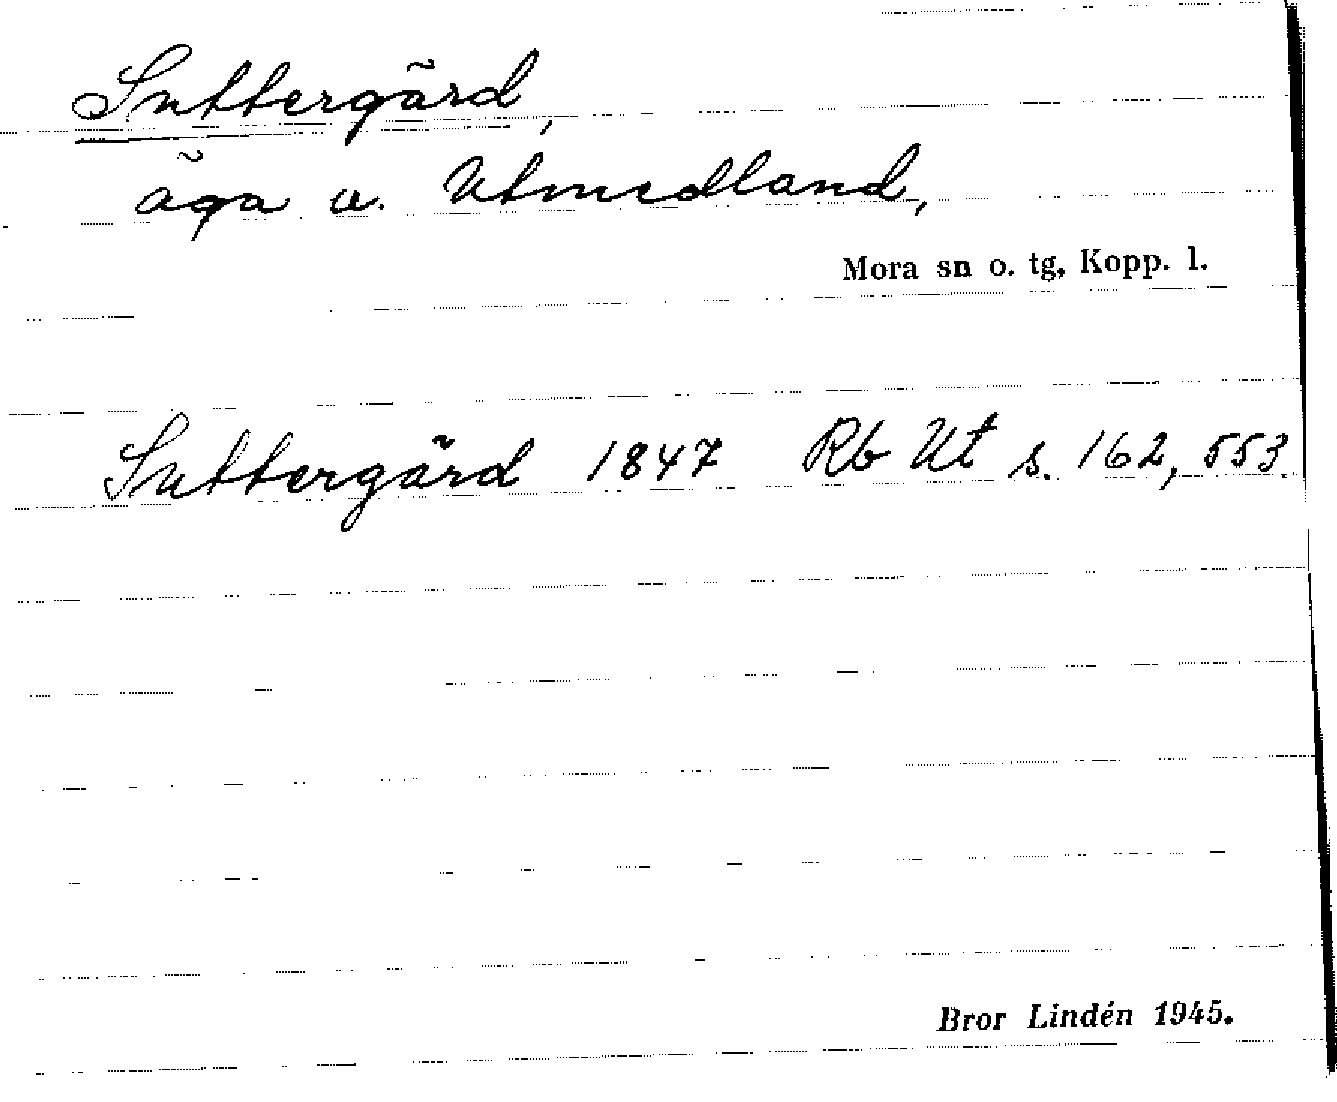 Suttergärd,
äga u. Utmedland,
Mora sn o. tg, Kopp. l.
Suttergärd 1847 Rb Ut s. 162, 553.
Bror Lindén 1945.